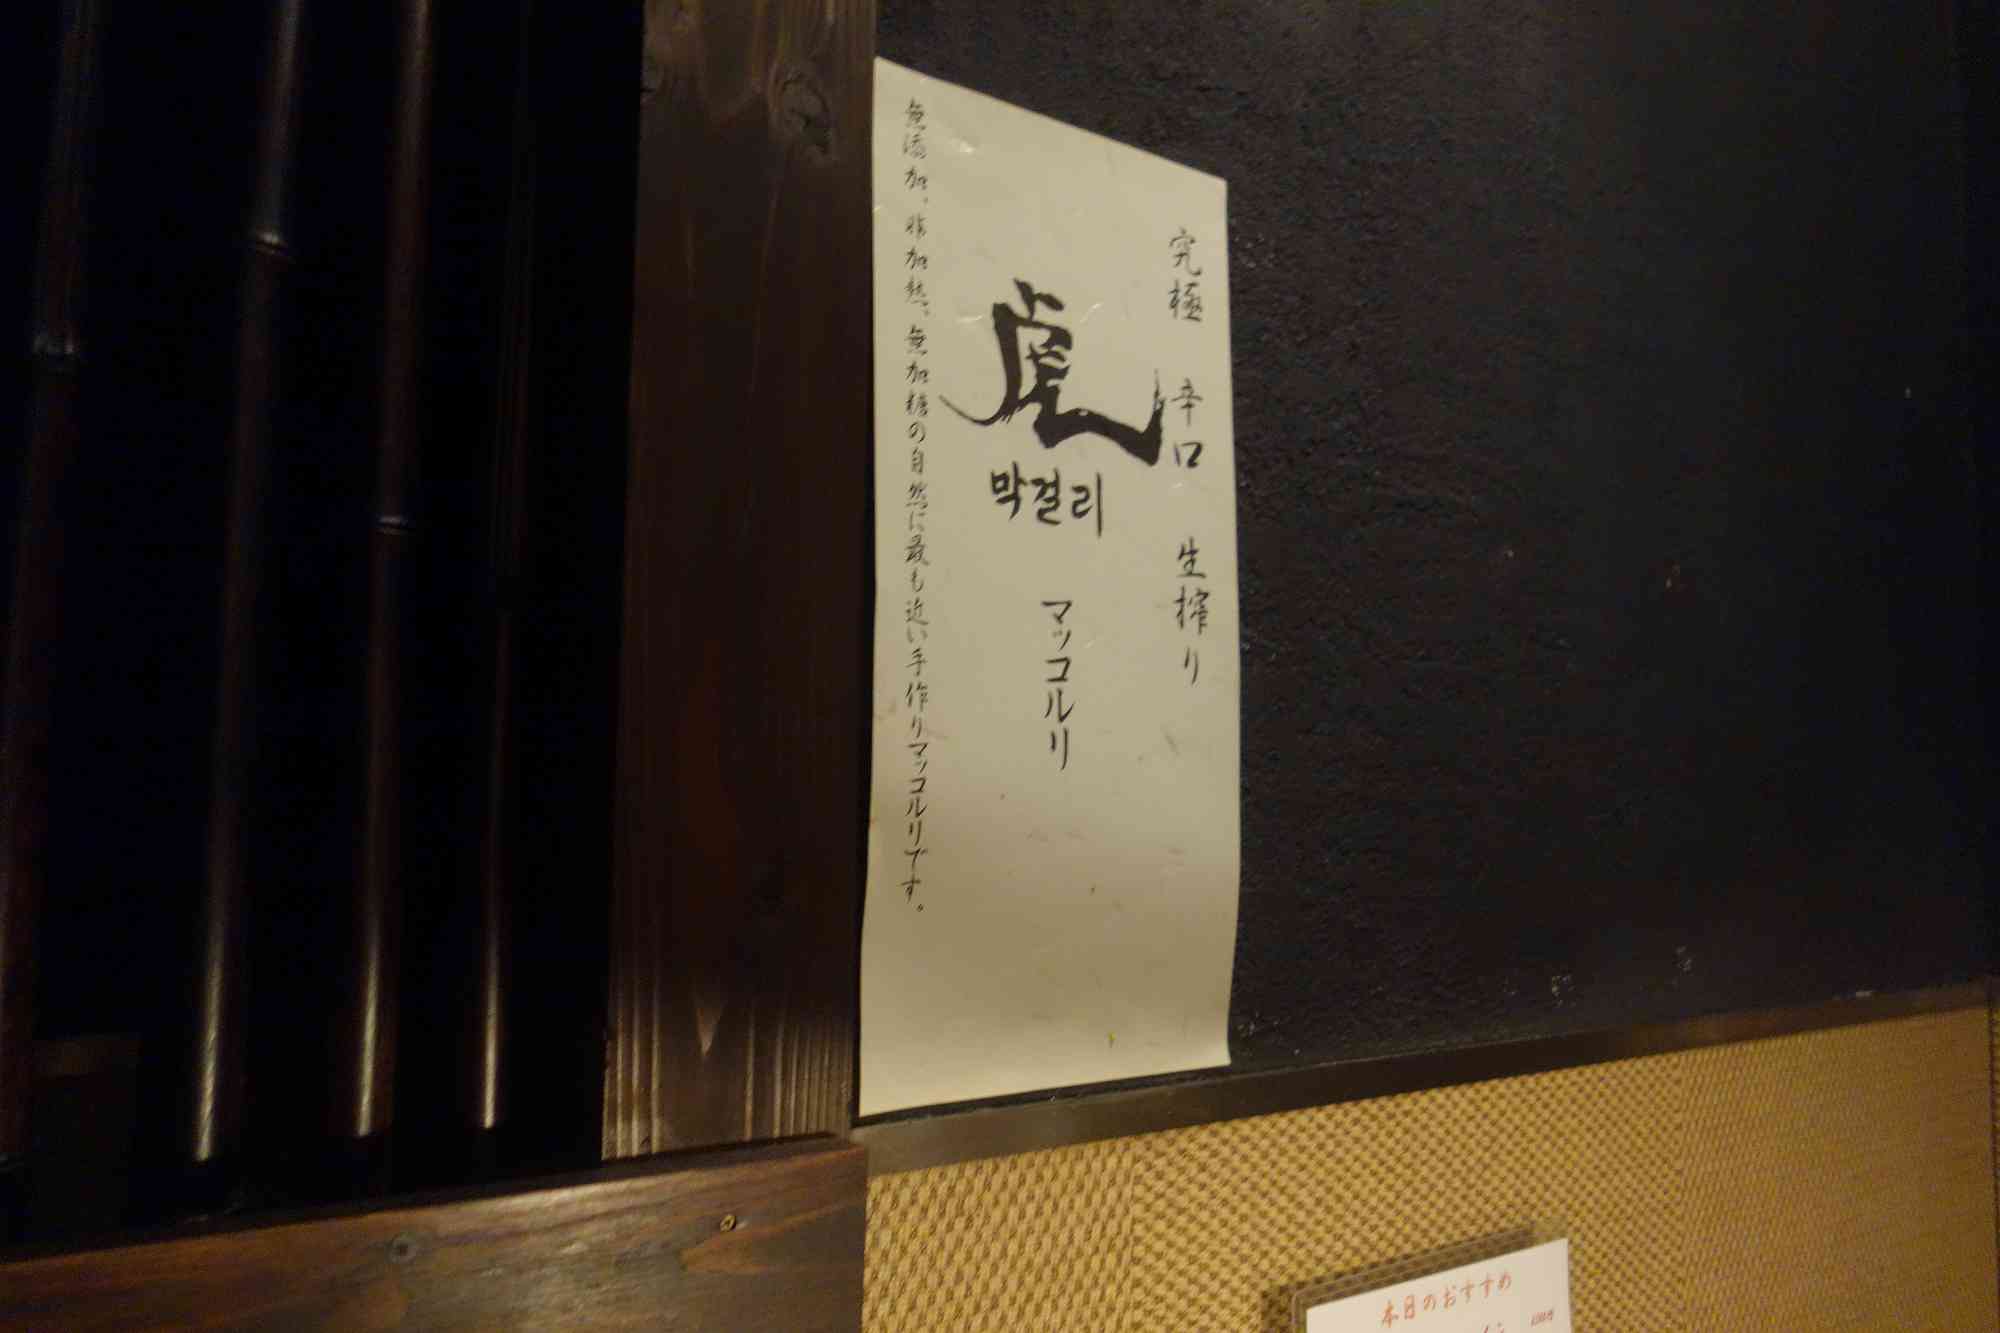 究極 辛口 生搾り
虎
막걸리
マッコルリ
無添加、非加熱、無加糖の自然に最も近い手作りマッコルリです。
本日のおすすめ